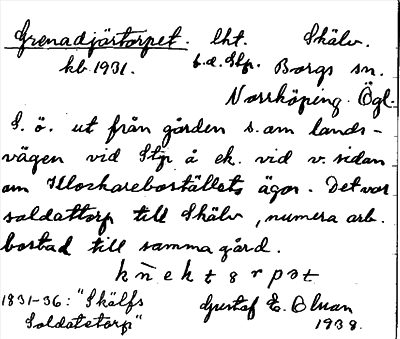 Grenadjärtorpet. lht. Skälv.
kb. 1931. b.d. Stp. Borgs sn.
Norrköping. Ögl.
S. ö. ut från gården s. om lands-
vägen vid Stp å ek. vid v. sidan
om Klockareboställets ägor. Det var
soldattorp till Skälv, numera arb.
bostad till samma gård.
1831-36: "Skälfs Gustaf E. Olsson
Soldatetorp" 1938.